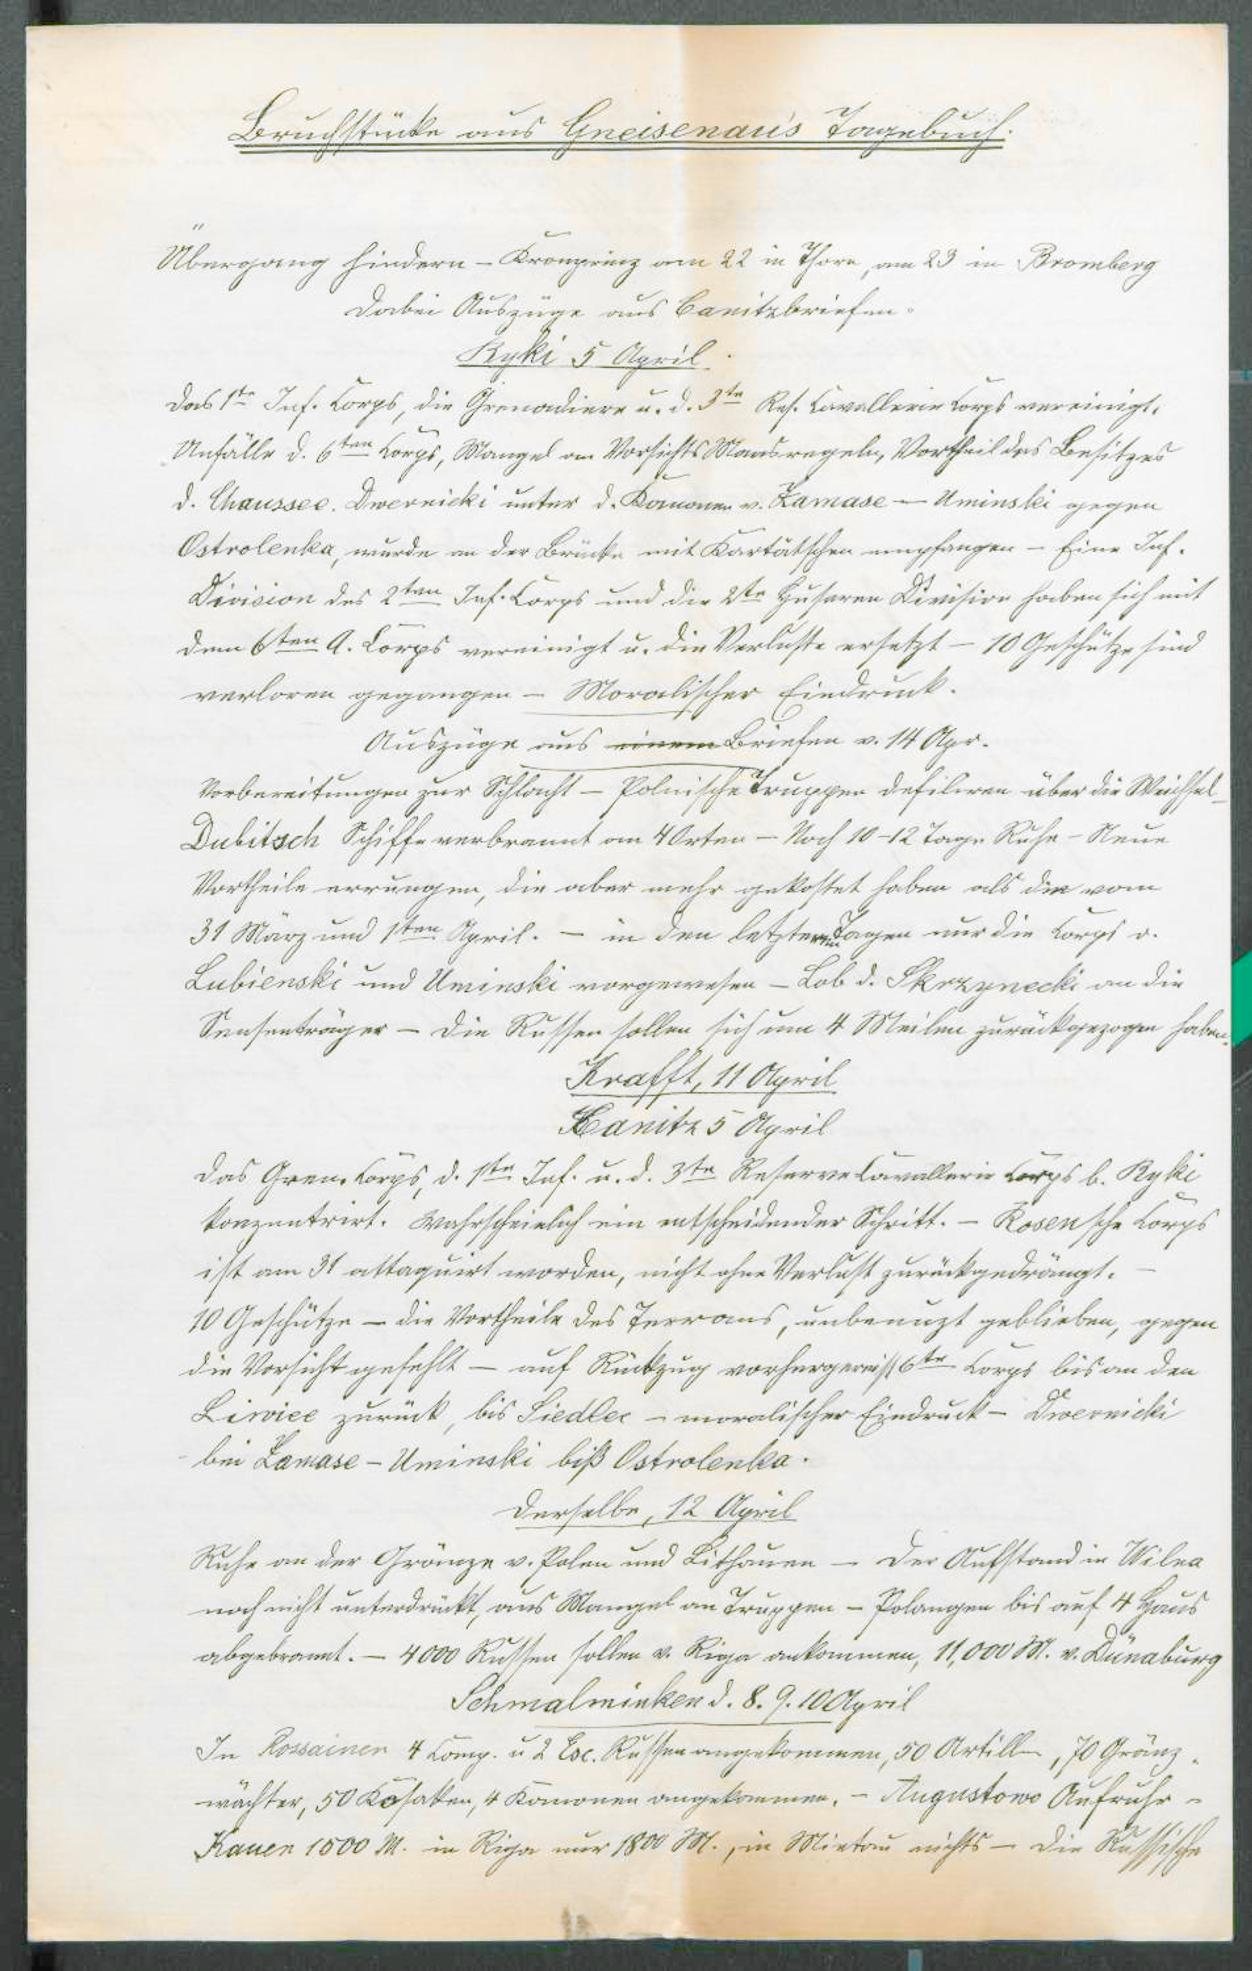 Bruchstücke aus Gneisenau's Tagebuch.
Übergang hindern – Kronprinz am 22 in Thorn, am 23 in Bromberg
Dabei Auszüge aus Canitzbriefen.
Ryki 5 April.
Das 1te Inf. Corps, die Grenadiere u. d. 3te Res. Cavallerie Corps vereinigt.
Unfälle d. 6ten Corps, Mangel an Vorsichts Maasregeln, Vortheil des Besitzes
d. Chaussee. Dwernicki unter d. Kanonen v. Zamase – Uminski gegen
Ostrolenka, wurde an der Brücke mit Kartätschen empfangen – Eine Inf.
Division des 2ten Inf. Corps und die 2te Husaren Division haben sich mit
dem 6ten A. Corps vereinigt u. die Verluste ersetzt – 10 Geschütze sind
verloren gegangen – Moralischer Eindruck.
Auszüge aus einem Briefen v. 14 Apr.
Vorbereitungen zur Schlacht – Polnische Truppen defiliren über die Weichsel –
Dubitsch Schiffe verbrannt an 4 Orten – Noch 10–12 Tage Ruhe – Neue
Vortheile errungen, die aber mehr gekostet haben als die vom
31 März und 1ten April. – in den letzten Tagen nur die Corps v.
Lubienski und Uminski vorgewesen – Lob d. Skrzynecki an die
Sensenträger – Die Russen sollen sich um 4 Meilen zurückgezogen haben.
Krafft, 11 April
Canitz 5 April
Das Gren. Corps, d. 1te Inf. u. d. 3te Reserve Cavallerie Corps b. Ryki
konzentrirt. Wahrscheinlich ein entscheidender Schritt. – Rosensche Corps
ist am 31 attaquirt worden, nicht ohne Verlust zurückgedrängt. –
10 Geschütze – die Vortheile des Terrans, unbenuzt geblieben, gegen
die Vorsicht gefehlt – auf Rückzug 6te Corps bis an den
Liwiec zurück, bis Siedlec – moralischer Eindruck – Dwernicki
bei Zamase – Uminski biß Ostrolenka.
Derselbe, 12 April
Ruhe an der Gränze v. Polen und Lithauen – Der Aufstand in Wilna
noch nicht unterdrückt, aus Mangel an Truppen – Polangen bis auf 4 Haus
abgebrannt. – 4000 Russen sollen v. Riga ankommen, 11,000 M. v. Dünaburg
Schmalminken d. 8. 9. 10 April
In Rossainen 4 Comp. u 2 Esc. Russen angekommen, 50 Artill, 70 Gränz-
wächter, 50 Kosaken, 4 Kanonen angekommen. – Augustowo Aufruhr –
Kauen 1500 M. in Riga nur 1800 M., in Mietau nichts – Die Russische